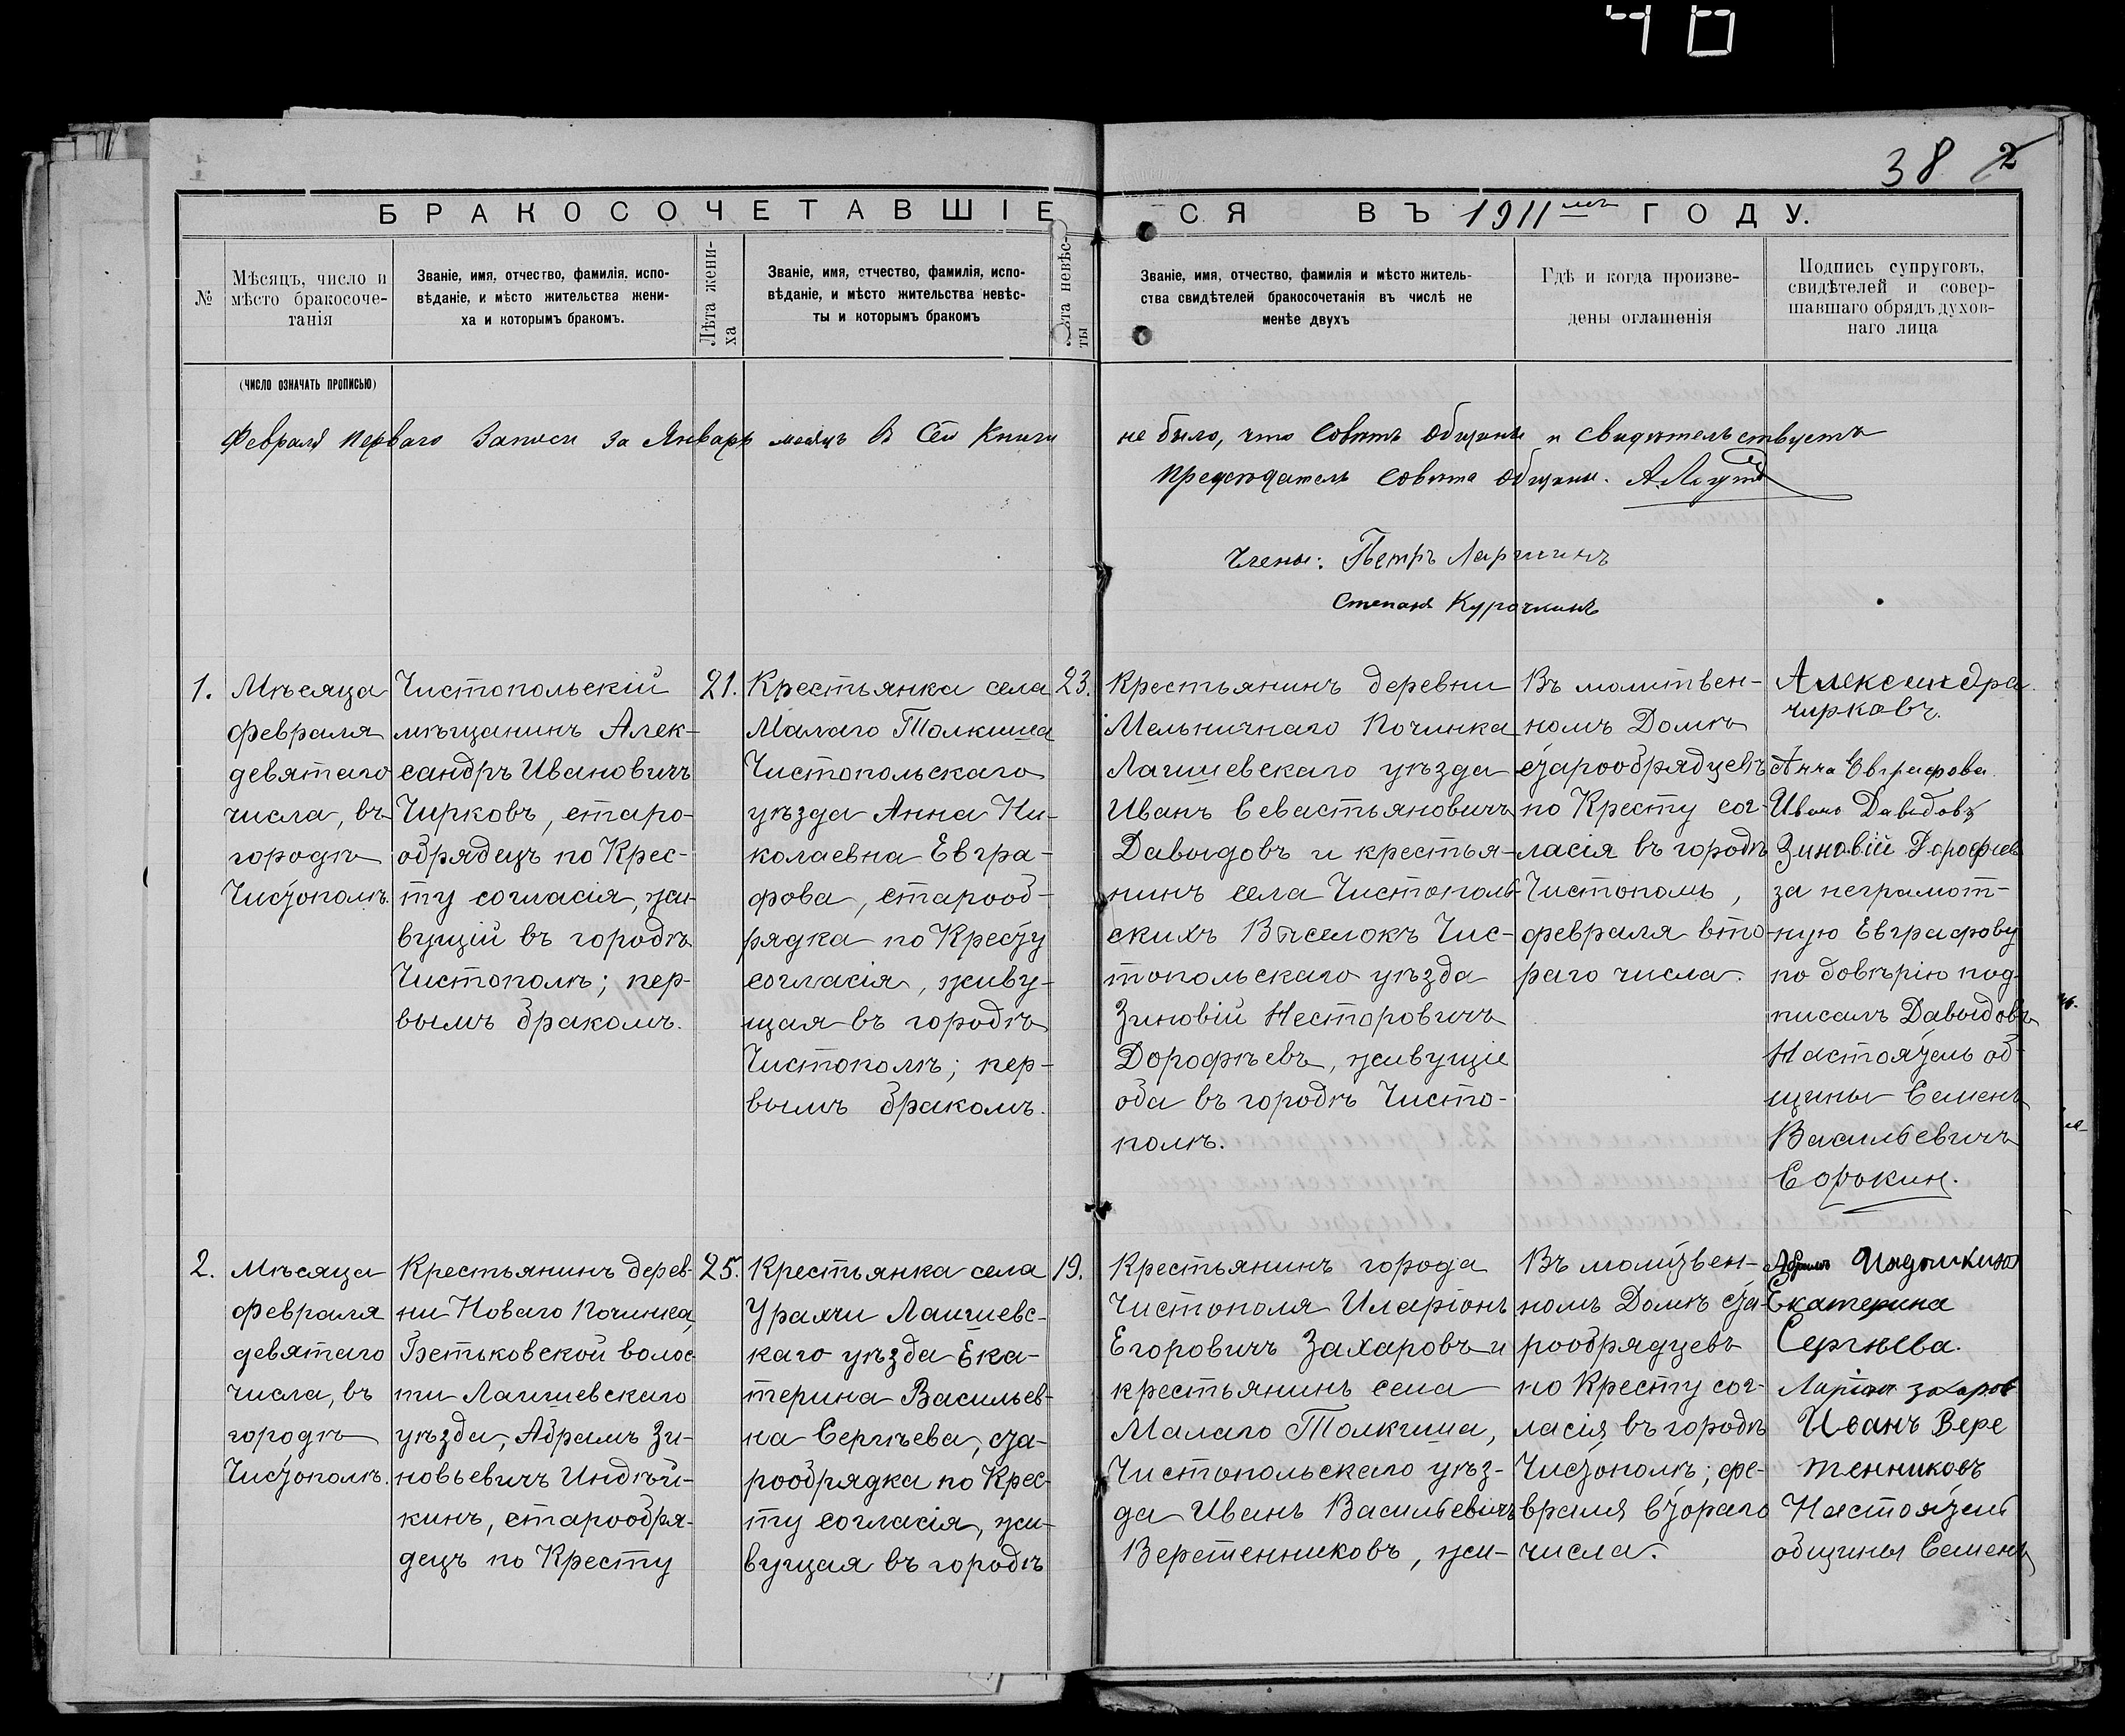 38 2
БРАКОСОЧЕТАВШІЕСЯ ВЪ 1911мъ ГОДУ.
№
Мѣсяцъ, число и
мѣсто бракосоче-
танія
Званіе, имя, отчество, фамилія, испо-
вѣданіе, и мѣсто жительства жени-
ха и которымъ бракомъ.
Лѣта жени-
ха
Званіе, имя, отчество, фамилія, испо-
вѣданіе, и мѣсто жительства невѣс-
ты и которымъ бракомъ
Лѣта невѣс-
ты
Званіе, имя, отчество, фамилія и мѣсто житель-
ства свидѣтелей бракосочетанія въ числѣ не
менѣе двухъ
Гдѣ и когда произве-
дены оглашенія
Подпись супруговъ,
свидѣтелей и совер-
шавшаго обрядъ духов-
наго лица
(ЧИСЛО ОЗНАЧАТЬ ПРОПИСЬЮ)
Февраля перваго Записи за Январь месяцъ в сей книги не было, что совѣтъ общины и свидѣтельствуетъ
Предсѣдатель совѣта общины.
Члены: Петръ Ларіинъ
Степанъ Курочкинъ
1.
Мѣсяца
февраля
девятаго
числа, въ
городѣ
Чистополѣ.
Чистопольскій
мѣщанинъ Алек-
сандръ Ивановичъ
Чирковъ, старо-
обрядецъ по Крес-
ту согласія, жи-
вущій въ городѣ
Чистополѣ; пер-
вымъ бракомъ.
21.
Крестьянка села
Малаго Толкиша
Чистопольскаго
уѣзда Анна Ни-
колаевна Евгра-
фова, старооб-
рядка по Кресту
согласія, живу-
щая въ городѣ
Чистополѣ; пер-
вымъ бракомъ.
23.
Крестьянинъ деревни
Мельничнаго Починка
Лаишевскаго уѣзда
Иванъ Севастьяновичъ
Давыдовъ и крестья-
нинъ села Чистополь-
скихъ Выселокъ Чис-
топольскаго уѣзда
Зиновій Несторовичъ
Дорофѣевъ, живущіе
оба въ городѣ Чисто-
полѣ.
Въ молитвен-
номъ Домѣ
старообрядцевъ
по Кресту сог-
ласія въ городѣ
Чистополь,
февраля вто-
раго числа.
Александра
чирковъ.
Анна Евграфова.
Иванъ Давыдовъ
Зиновій Дорофѣевъ
за неграмот-
ную Евграфову
по довѣрію под-
писалъ Давыдовъ
Настоятель об-
щины Семенъ
Васильевичъ
Сорокин.
2.
Мѣсяца
февраля
девятаго
числа, въ
городѣ
Чистополѣ.
Крестьянинъ дерев-
ни Новаго Починка,
Бетьковской волос-
ти Лаишевскаго
уѣзда, Абрамъ Зи-
новьевичъ Индѣй-
кинъ, старообря-
децъ по Кресту
25.
Крестьянка села
Урахчи Лаишевс-
каго уѣзда Ека-
терина Васильев-
на Сергѣева, ста-
рообрядка по Крес-
ту согласія, жи-
вущая въ городѣ
19.
Крестьянинъ города
Чистополя Иларіонъ
Егоровичъ Захаровъ и
крестьянинъ села
Малаго Толкиша,
Чистопольскаго уѣз-
да Иванъ Васильевичъ
Веретенниковъ, жи-
Въ молитвен-
номъ Домѣ ста-
рообрядцевъ
по Кресту сог-
ласія въ городѣ
Чистополѣ; фе-
враля втораго
числа.
Абрамъ
Екатерина
Сергѣева.
Ларіон захаров
Иванъ Вере
тенниковъ
Настоятель
общины Семенъ